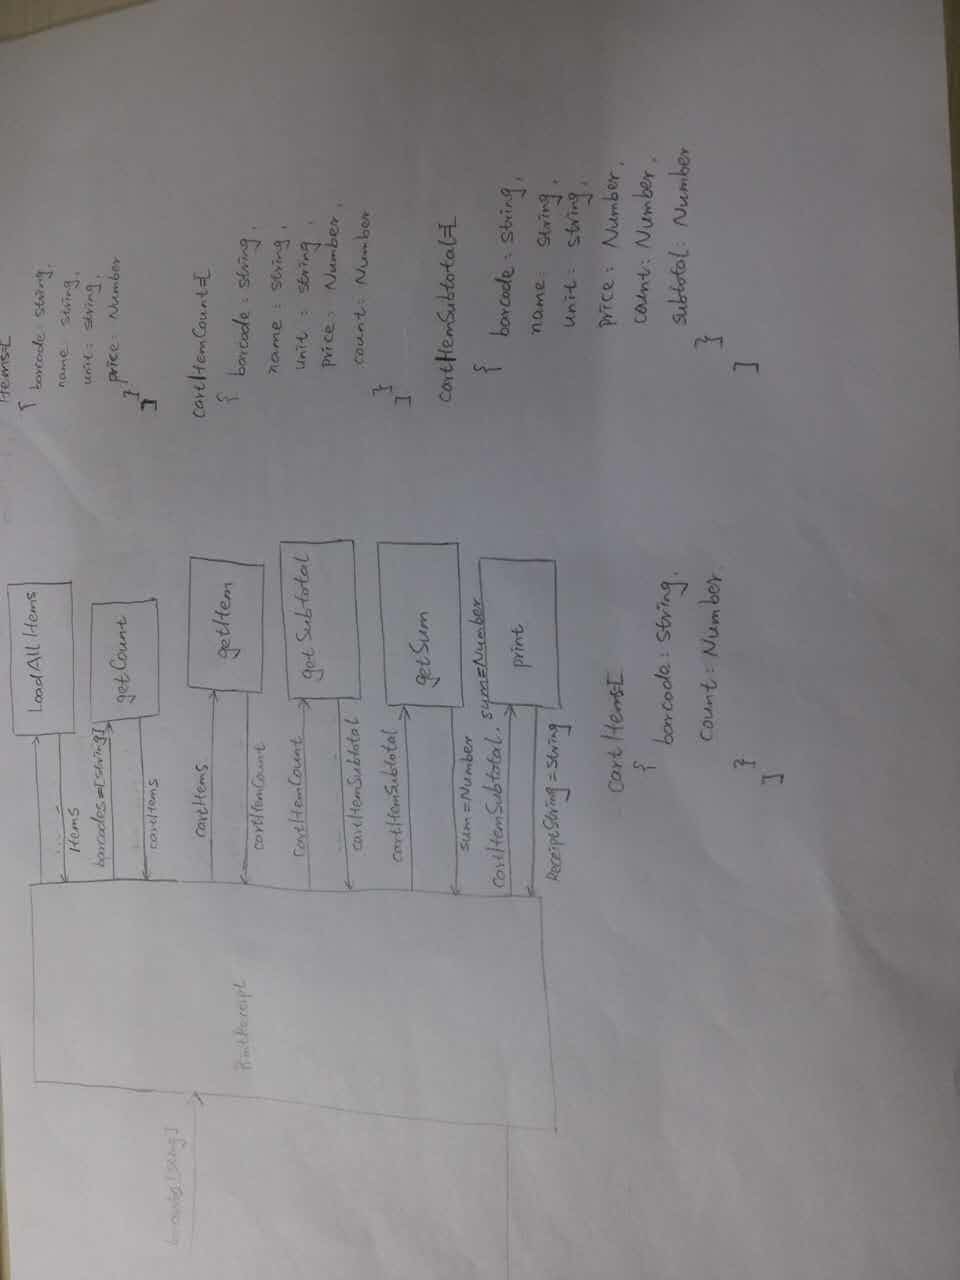 printReceipt
LoadAllItems
Items
barcodes=[string]
getCount
cartItems
cartItems
getItem
cartItemCount
cartItemCount
getSubtotal
cartItemSubtotal
cartItemSubtotal
getSum
sum=Number
cartItemSubtotal, sum=Number
print
ReceiptString=string
Items=[
{
barcode: string,
name: string,
unit: string,
price: Number
}
]
cartItemCount=[
{
barcode: string,
name: string,
unit: string,
price: Number,
count: Number
}
]
cartItemSubtotal=[
{
barcode: string,
name: string,
unit: string,
price: Number,
count: Number,
subtotal: Number
}
]
cartItems=[
{
barcode: string,
count: Number
}
]